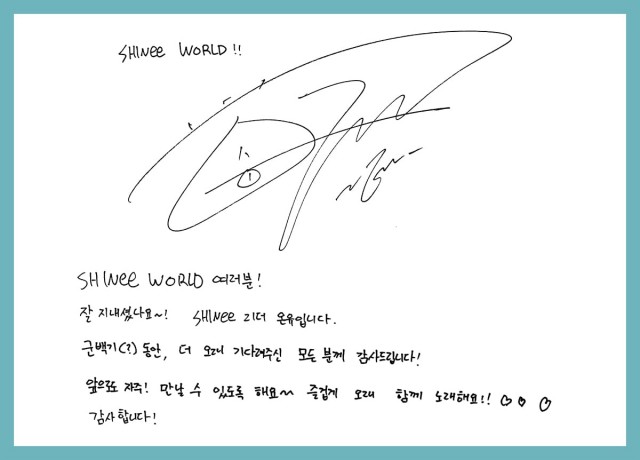 SHINee WORLD!!
SHINee WORLD 여러분!
잘 지내셨나요~! SHINee 리더 온유입니다.
군백기(?) 동안, 더 오래 기다려주신 모든 분께 감사드립니다!
앞으로도 자주! 만날 수 있도록 해요~ 즐겁게 오래 함께 노래해요!! ♡ ♡ ♡
감사합니다!